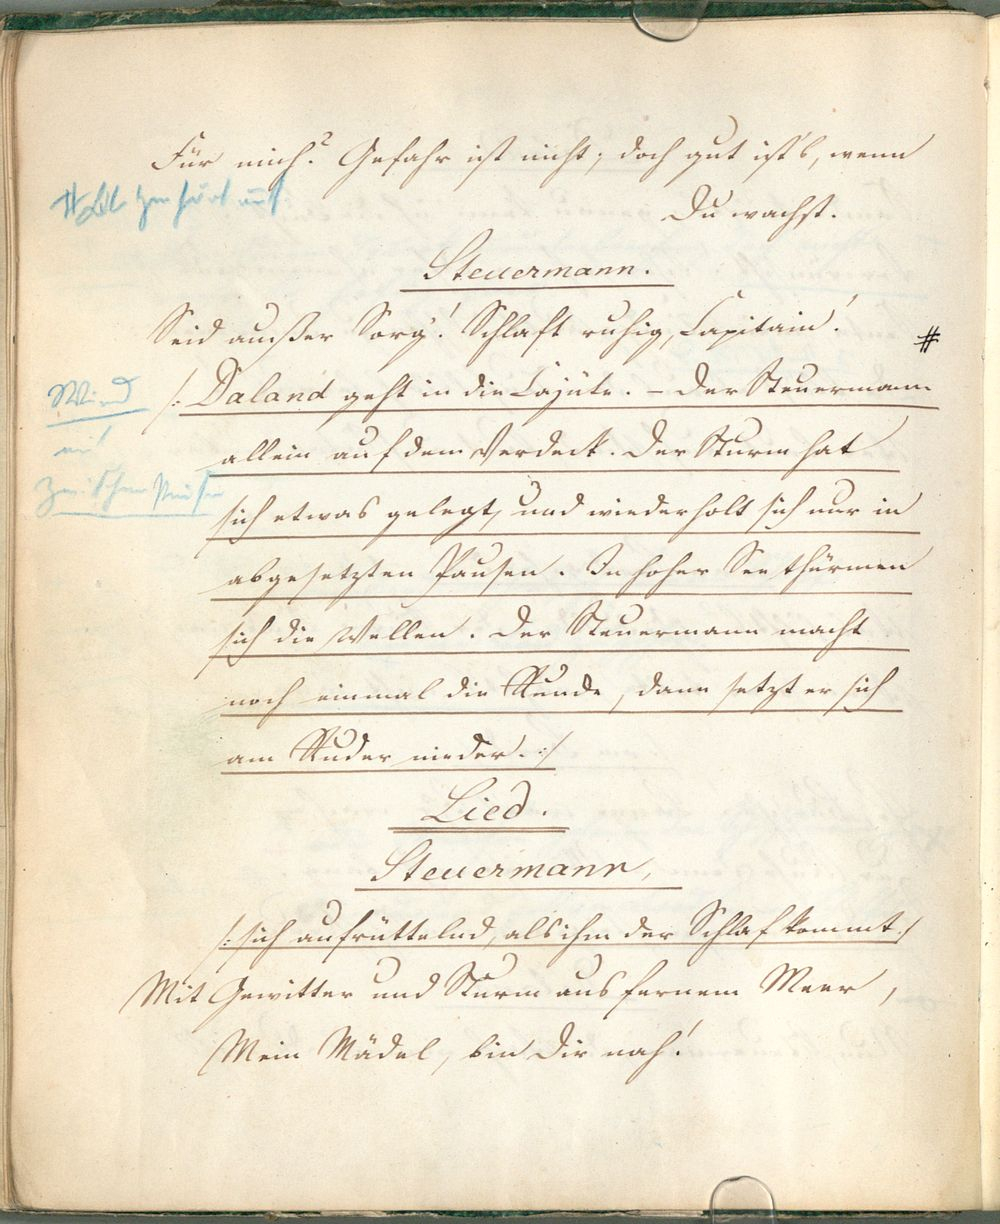 Für mich? Gefahr ist nicht; doch gut ist's, wenn
Du wachst.
Steuermann.
Seid außer Sorg'! Schlaft ruhig, Capitain!
#
Wind
/: Daland geht in die Cajüte. – Der Steuermann
allein auf dem Verdeck. Der Sturm hat
sich etwas gelegt, und wiederholt sich nur in
abgesetzten Pausen. In hoher See thürmen
sich die Wellen. Der Steuermann macht
noch einmal die Runde, dann setzt er sich
am Ruder nieder. :/
Lied.
Steuermann,
/: sich aufrüttelnd, als ihm der Schlaf kommt :/
Mit Gewitter und Sturm aus fernem Meer,
Mein Mädel, bin Dir nah!